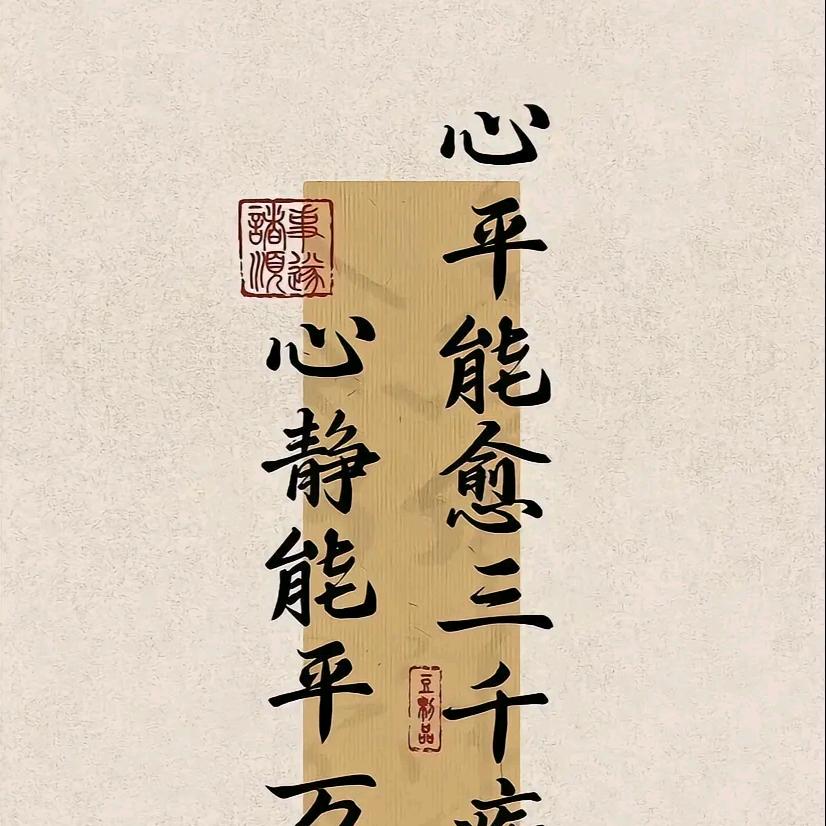 心平能愈三千疾
心静能平万
事遂諸順
豆制品